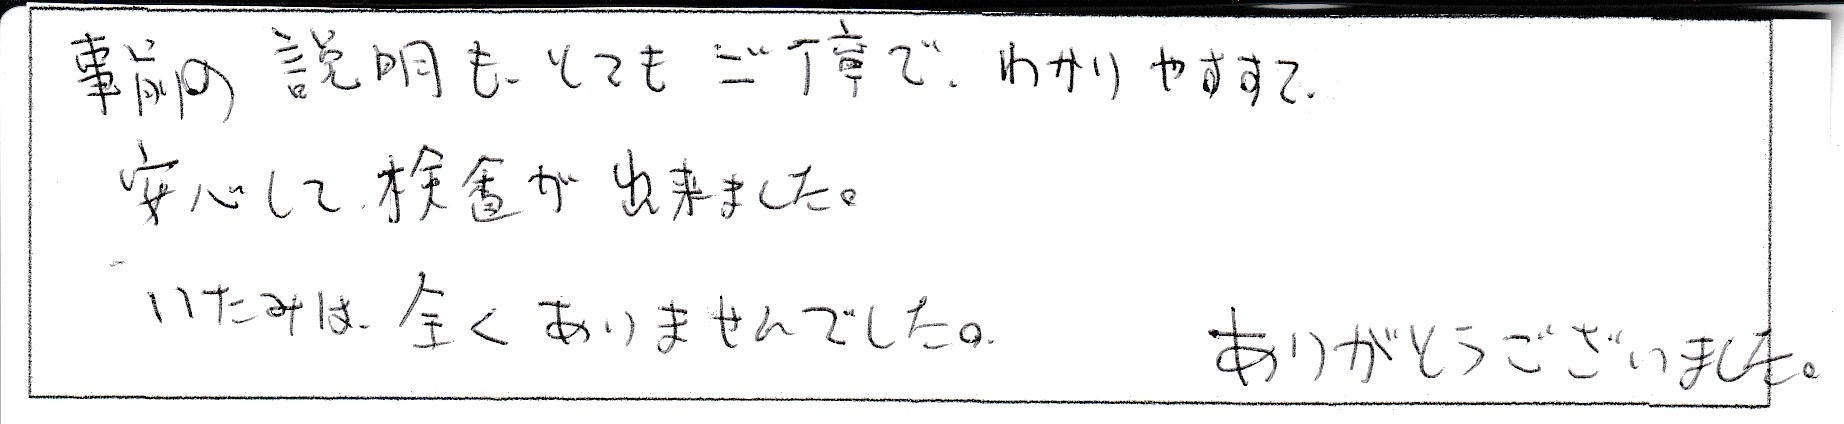 事前の説明も、とてもご丁寧で、わかりやすすて、
安心して、検査が出来ました。
いたみは、全くありませんでした。
ありがとうございました。